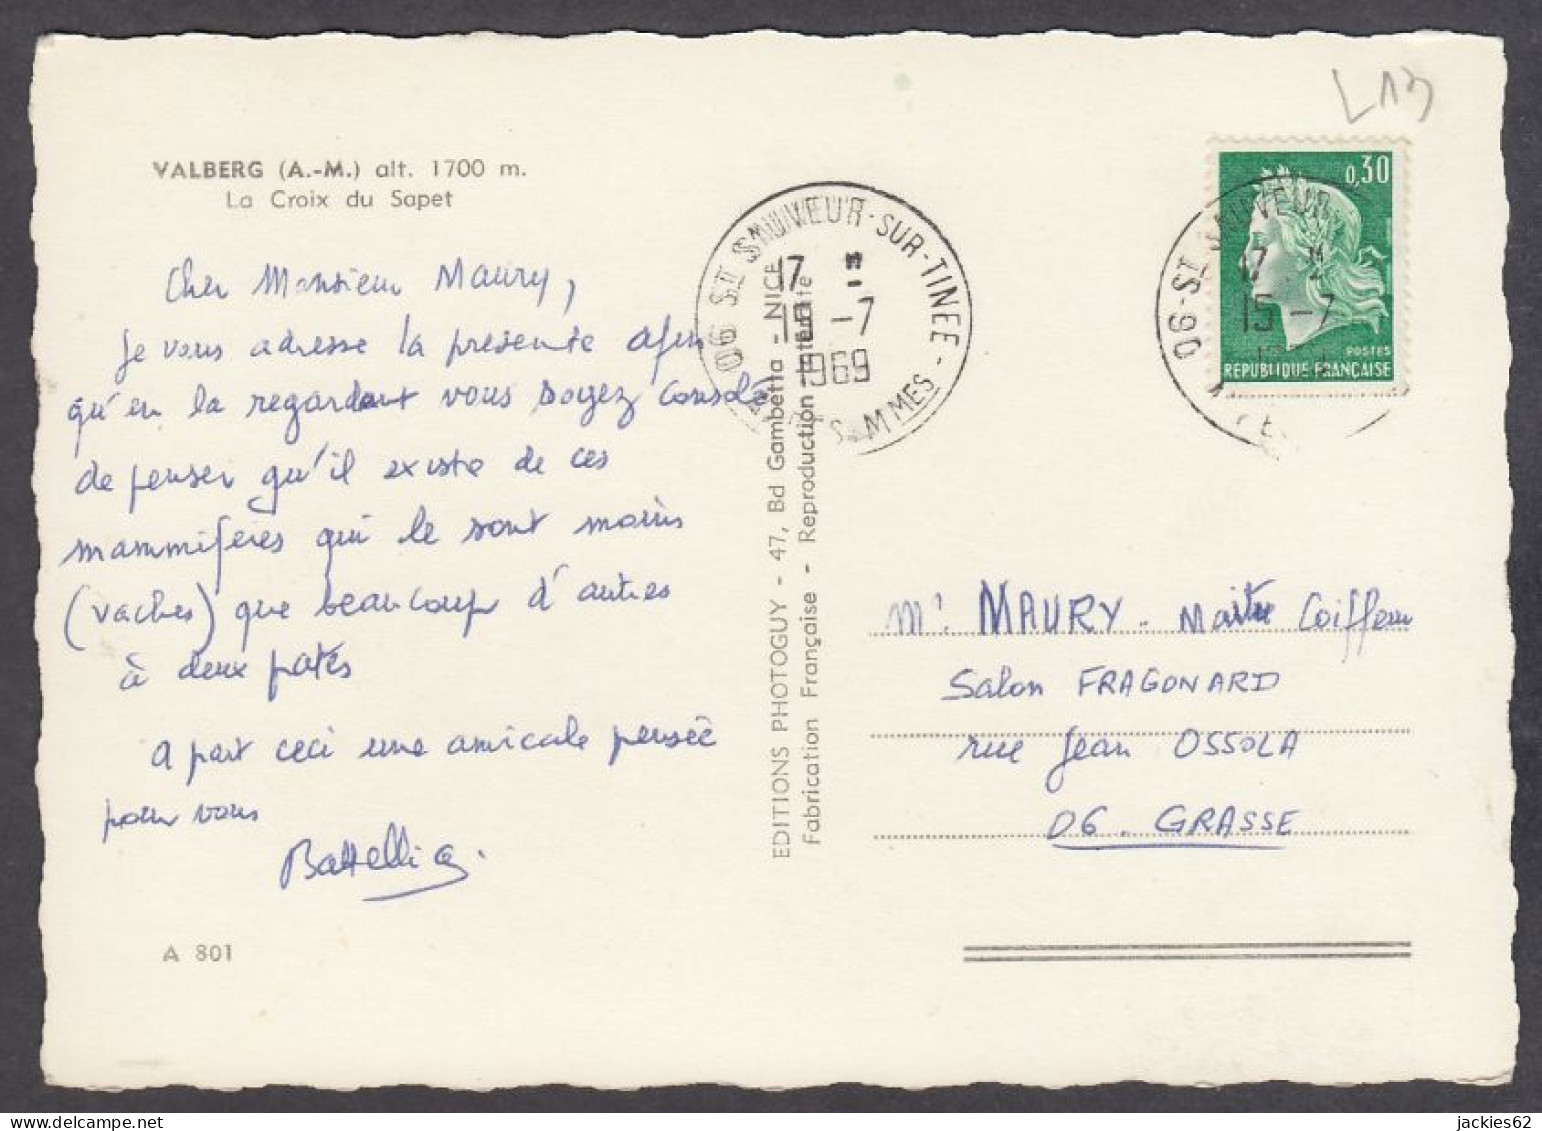 L13
VALBERG (A.-M.) alt. 1700 m.
La Croix du Sapet
Cher Monsieur Maury,
je vous adresse la présente afin
qu'en la regardant vous soyez consolé
de penser qu'il existe de ces
mammifères qui le sont moins
(vaches) que beaucoup d'autres
à deux patés
A part ceci une amicale pensée
pour vous
Battelli
A 801
06 ST SAUVEUR-SUR-TINEE - MMES
17 H
15 - 7
1969
EDITIONS PHOTOGUY - 47, Bd Gambetta - NICE
Fabrication Française - Reproduction interdite
0,30
POSTES
REPUBLIQUE FRANÇAISE
06-ST SAUVEUR
17 H
15 - 7
Mr. MAURY - Maitre Coiffeur
Salon FRAGONARD
rue Jean OSSOLA
06. GRASSE
jackies62